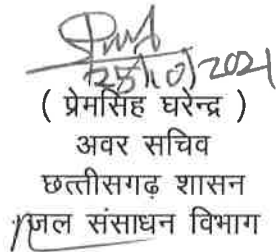 25/10/2021
( प्रेमसिंह घरेन्द्र )
अवर सचिव
छत्तीसगढ़ शासन
जल संसाधन विभाग